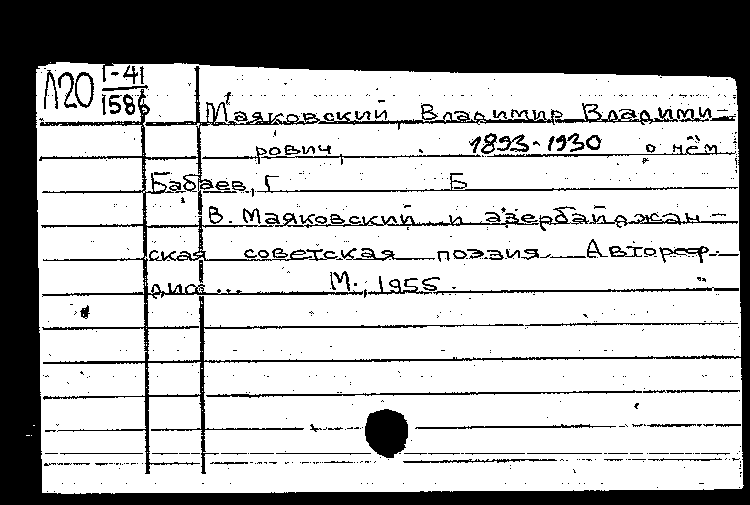 Л20 Г-41
1586
Маяковский, Владимир Владими-
рович, 1893-1930 о нём
Бабаев, Г Б
В. Маяковский и азербайджан-
ская советская поэзия. Автореф.
дис... М., 1955.